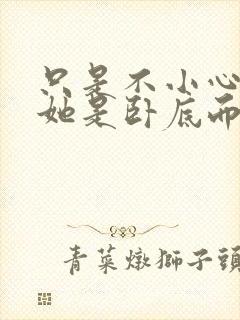 只是不小心
她是卧底而
青菜燉獅子頭